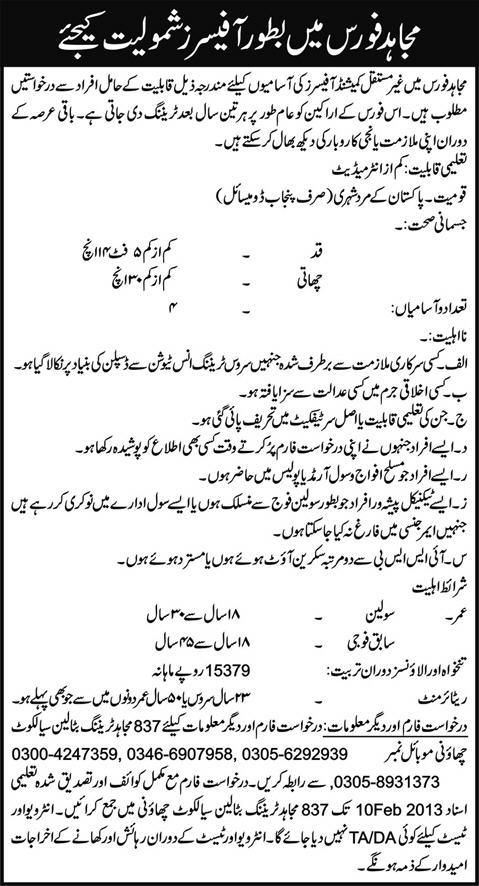 مجاہد فورس میں بطور آفیسرز شمولیت کیجئے
مجاہد فورس میں غیر مستقل کمیشنڈ آفیسرز کی آسامیوں کیلئے مندرجہ ذیل قابلیت کے حامل افراد سے درخواستیں
مطلوب ہیں۔ اس فورس کے اراکین کو عام طور پر ہر تین سال بعد ٹریننگ دی جاتی ہے۔ باقی عرصہ کے
دوران اپنی ملازمت یا نجی کاروبار کی دیکھ بھال کر سکتے ہیں۔
تعلیمی قابلیت: کم از انٹرمیڈیٹ
قومیت۔ پاکستان کے مرد شہری (صرف پنجاب ڈومیسائل)
جسمانی صحت:۔
قد - کم از کم ۵ فٹ ۴ انچ
چھاتی - کم از کم ۳۰ انچ
تعداد و آسامیاں: ۴
نااہلیت:۔
الف۔ کسی سرکاری ملازمت سے برطرف شدہ جنہیں سروس ٹریننگ انس ٹیوشن سے ڈسپلن کی بنیاد پر نکالا گیا ہو۔
ب۔ کسی اخلاقی جرم میں کسی عدالت سے سزا یافتہ ہو۔
ج۔ جن کی تعلیمی قابلیت یا اصل سرٹیفکیٹ میں تحریف پائی گئی ہو۔
د۔ ایسے افراد جنہوں نے اپنی درخواست فارم پُر کرتے وقت کسی بھی اطلاع کو پوشیدہ رکھا ہو۔
ر۔ ایسے افراد جو مسلح افواج و سول آرمڈ یا پولیس میں حاضر ہوں۔
ز۔ ایسے ٹیکنیکل پیشہ ور افراد جو بطور سولین فوج سے منسلک ہوں یا ایسے سول ادارے میں نوکری کر رہے ہیں
جنہیں ایمرجنسی میں فارغ نہ کیا جا سکتا ہوں۔
س۔ آئی ایس ایس بی سے دو مرتبہ سکرین آؤٹ ہوئے ہوں یا مسترد ہوئے ہوں۔
شرائط اہلیت
عمر۔ سولین - ۱۸ سال سے ۳۰ سال
سابق فوجی - ۱۸ سال سے ۴۵ سال
تنخواہ اور الاؤنسز دوران تربیت: 15379 روپے ماہانہ
ریٹائرمنٹ - ۲۳ سال سروس یا ۵۰ سال عمر دونوں میں سے جو بھی پہلے ہو۔
درخواست فارم اور دیگر معلومات: درخواست فارم اور دیگر معلومات کیلئے 837 مجاہد ٹریننگ بٹالین سیالکوٹ
چھاؤنی موبائل نمبر 0300-4247359, 0346-6907958, 0305-6292939
0305-8931373, سے رابطہ کریں۔ درخواست فارم مع مکمل کوائف اور تصدیق شدہ تعلیمی
اسناد 10Feb 2013 تک 837 مجاہد ٹریننگ بٹالین سیالکوٹ چھاؤنی میں جمع کرائیں۔ انٹرویو اور
ٹیسٹ کیلئے کوئی TA/DA نہیں دیا جائے گا۔ انٹرویو اور ٹیسٹ کے دوران رہائش اور کھانے کے اخراجات
امیدوار کے ذمہ ہونگے۔